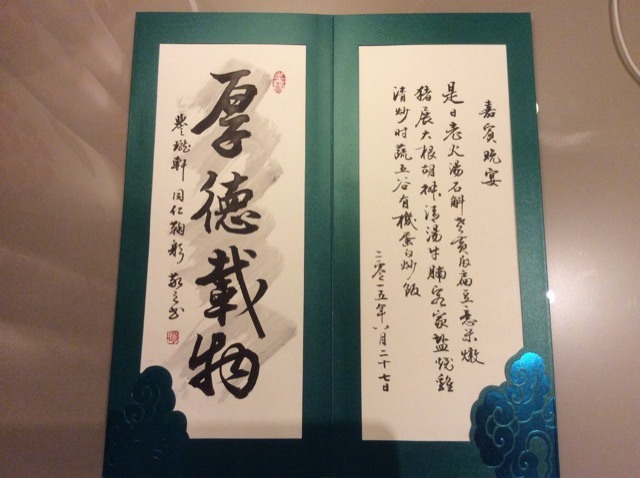 嘉賓晚宴
是日老火湯石斛老黃瓜扁豆薏米燉
豬展大根胡椒清湯牛腩客家盐焗雞
清炒时蔬五谷有機蛋白炒飯
二零一五年八月二十七日
厚德載物
譽瓏軒 同仁鞠躬